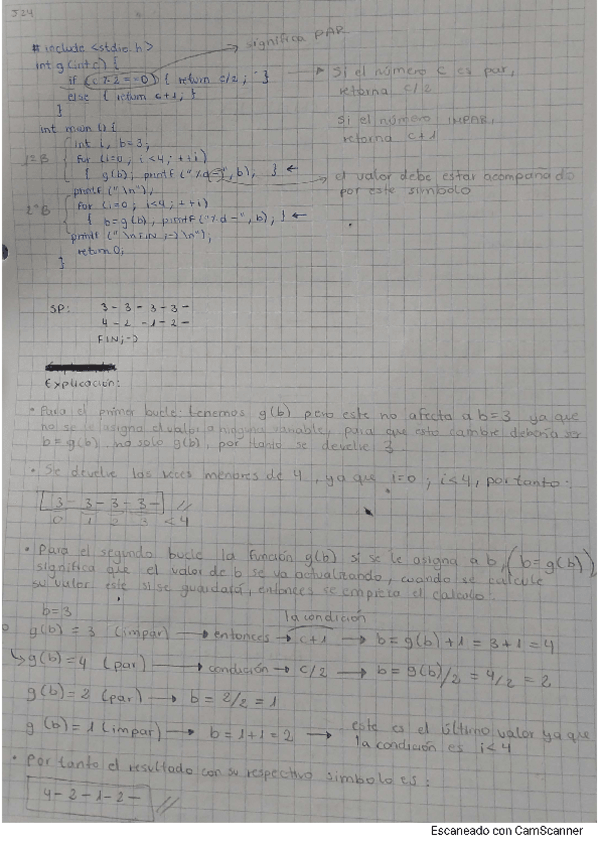 J24
# include <stdio.h>
significa PAR
int g (int c) {
if (c % 2 == 0) { return c/2 ; }
else { return c+1 ; }
}
Si el número c es par,
retorna c/2
Si el número IMPAR,
retorna c+1
int main () {
int i, b=3;
1º B
for (i=0, i<4; ++i)
{ g(b); printf ("%d-", b), } ←
printf ("\n");
el valor debe estar acompañado
por este símbolo
2º B
for (i=0; i<4; ++i)
{ b=g(b), printf ("%d-", b), } ←
printf ("\nFIN ;-) \n");
return 0;
}
SP: 3 - 3 - 3 - 3 -
4 - 2 - 1 - 2 -
FIN ;-)
Explicación:
• Para el primer bucle: tenemos g(b) pero este no afecta a b=3 ya que
no se le asigna el valor a ninguna variable, para que esto cambie debería ser
b=g(b) no solo g(b), por tanto se devuelve 3
• Se devuelve las veces menores de 4, ya que i=0 ; i<4, por tanto:
3 - 3 - 3 - 3 - //
0 1 2 3 < 4
• Para el segundo bucle la función g(b) si se le asigna a b, (b=g(b)),
significa que el valor de b se va actualizando, cuando se calcule
su valor este si se guardará, entonces se empieza el calculo:
b=3
la condición
g(b) = 3 (impar) → entonces → c+1 → b = g(b)+1 = 3+1 = 4
↳ g(b) = 4 (par) → condición → c/2 → b = g(b)/2 = 4/2 = 2
g(b) = 2 (par) → b = 2/2 = 1
g(b) = 1 (impar) → b = 1+1 = 2 → este es el último valor ya que
la condición es i<4
• Por tanto el resultado con su respectivo simbolo es:
4 - 2 - 1 - 2 - //
Escaneado con CamScanner